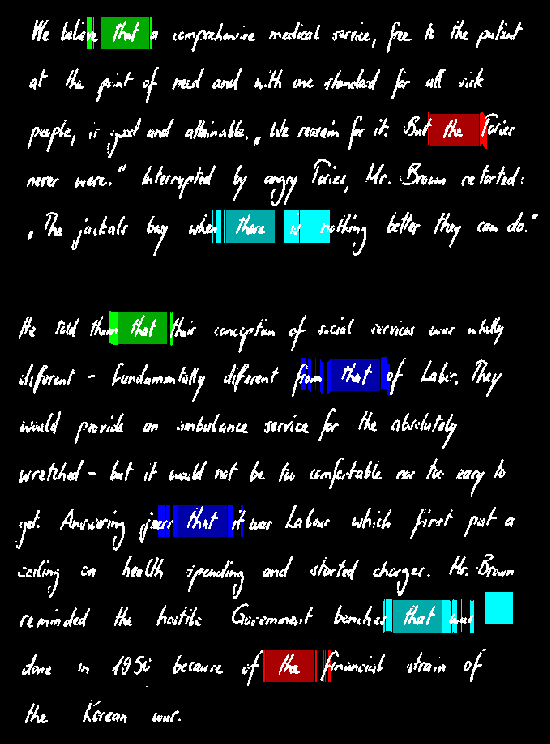 We believe that a comprehensive medical service, free to the patient
at the point of need and with one standard for all sick
people, is good and attainable. „We reason for it. But the Tories
never were." Interrupted by angry Tories, Mr. Brown retorted:
„The jackals bay when there is nothing better they can do."
He told them that their conception of social services was wholly
different - fundamentally different from that of Labour. They
would provide an ambulance service for the absolutely
wretched - but it would not be too comfortable nor too easy to
get. Answering jeers that it was Labour which first put a
ceiling on health spending and started charges. Mr. Brown
reminded the hostile Government benches that was
done in 1950 because of the financial strain of
the Korean war.